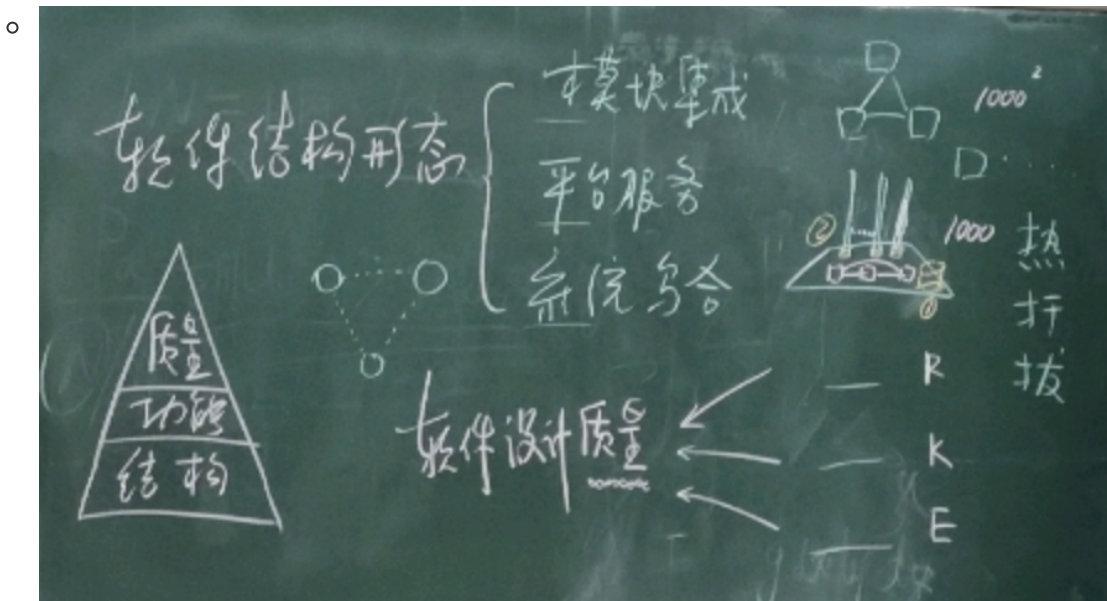 软件结构形态
模块集成
平台服务
系统
1000²
1000
热
拔
质量
功能
结构
软件设计质量
②
①
R
K
E